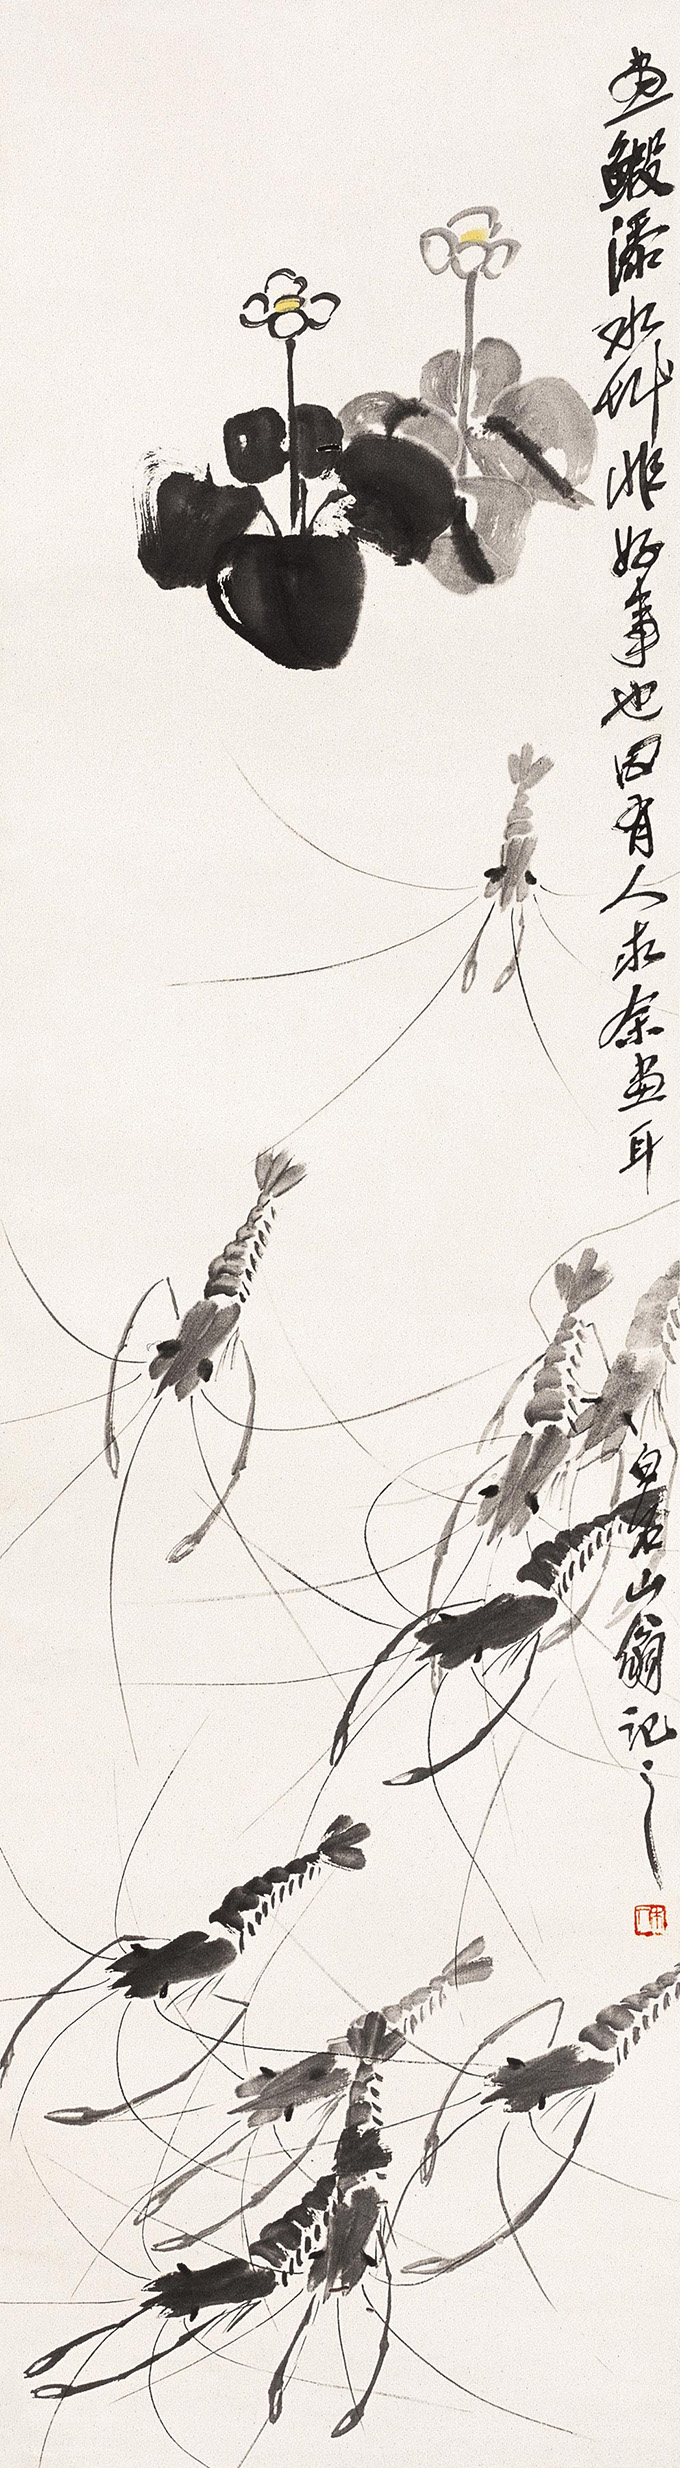 画鰕添水草非好事也因有人求余画耳
白石山翁记之
木人